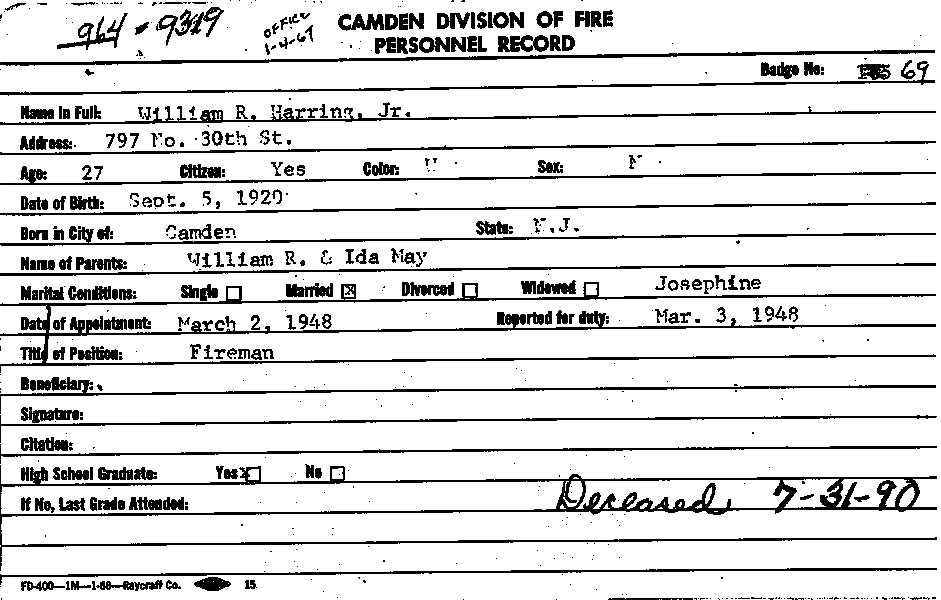 964-9319 OFFICE 1-4-67 CAMDEN DIVISION OF FIRE
PERSONNEL RECORD
Badge No: 69
Name in Full: William R. Harring, Jr.
Address: 797 No. 30th St.
Age: 27 Citizen: Yes Color: Sex: M
Date of Birth: Sept. 5, 1920
Born in City of: Camden State: N.J.
Name of Parents: William R. & Ida May
Marital Conditions: Single ☐ Married ☒ Divorced ☐ Widowed ☐ Josephine
Date of Appointment: March 2, 1948 Reported for duty: Mar. 3, 1948
Title of Position: Fireman
Beneficiary:
Signature:
Citation:
High School Graduate: Yes ☒ No ☐
If No, Last Grade Attended: Deceased 7-31-90
FD-400—1M—1-68—Raycraft Co. 15